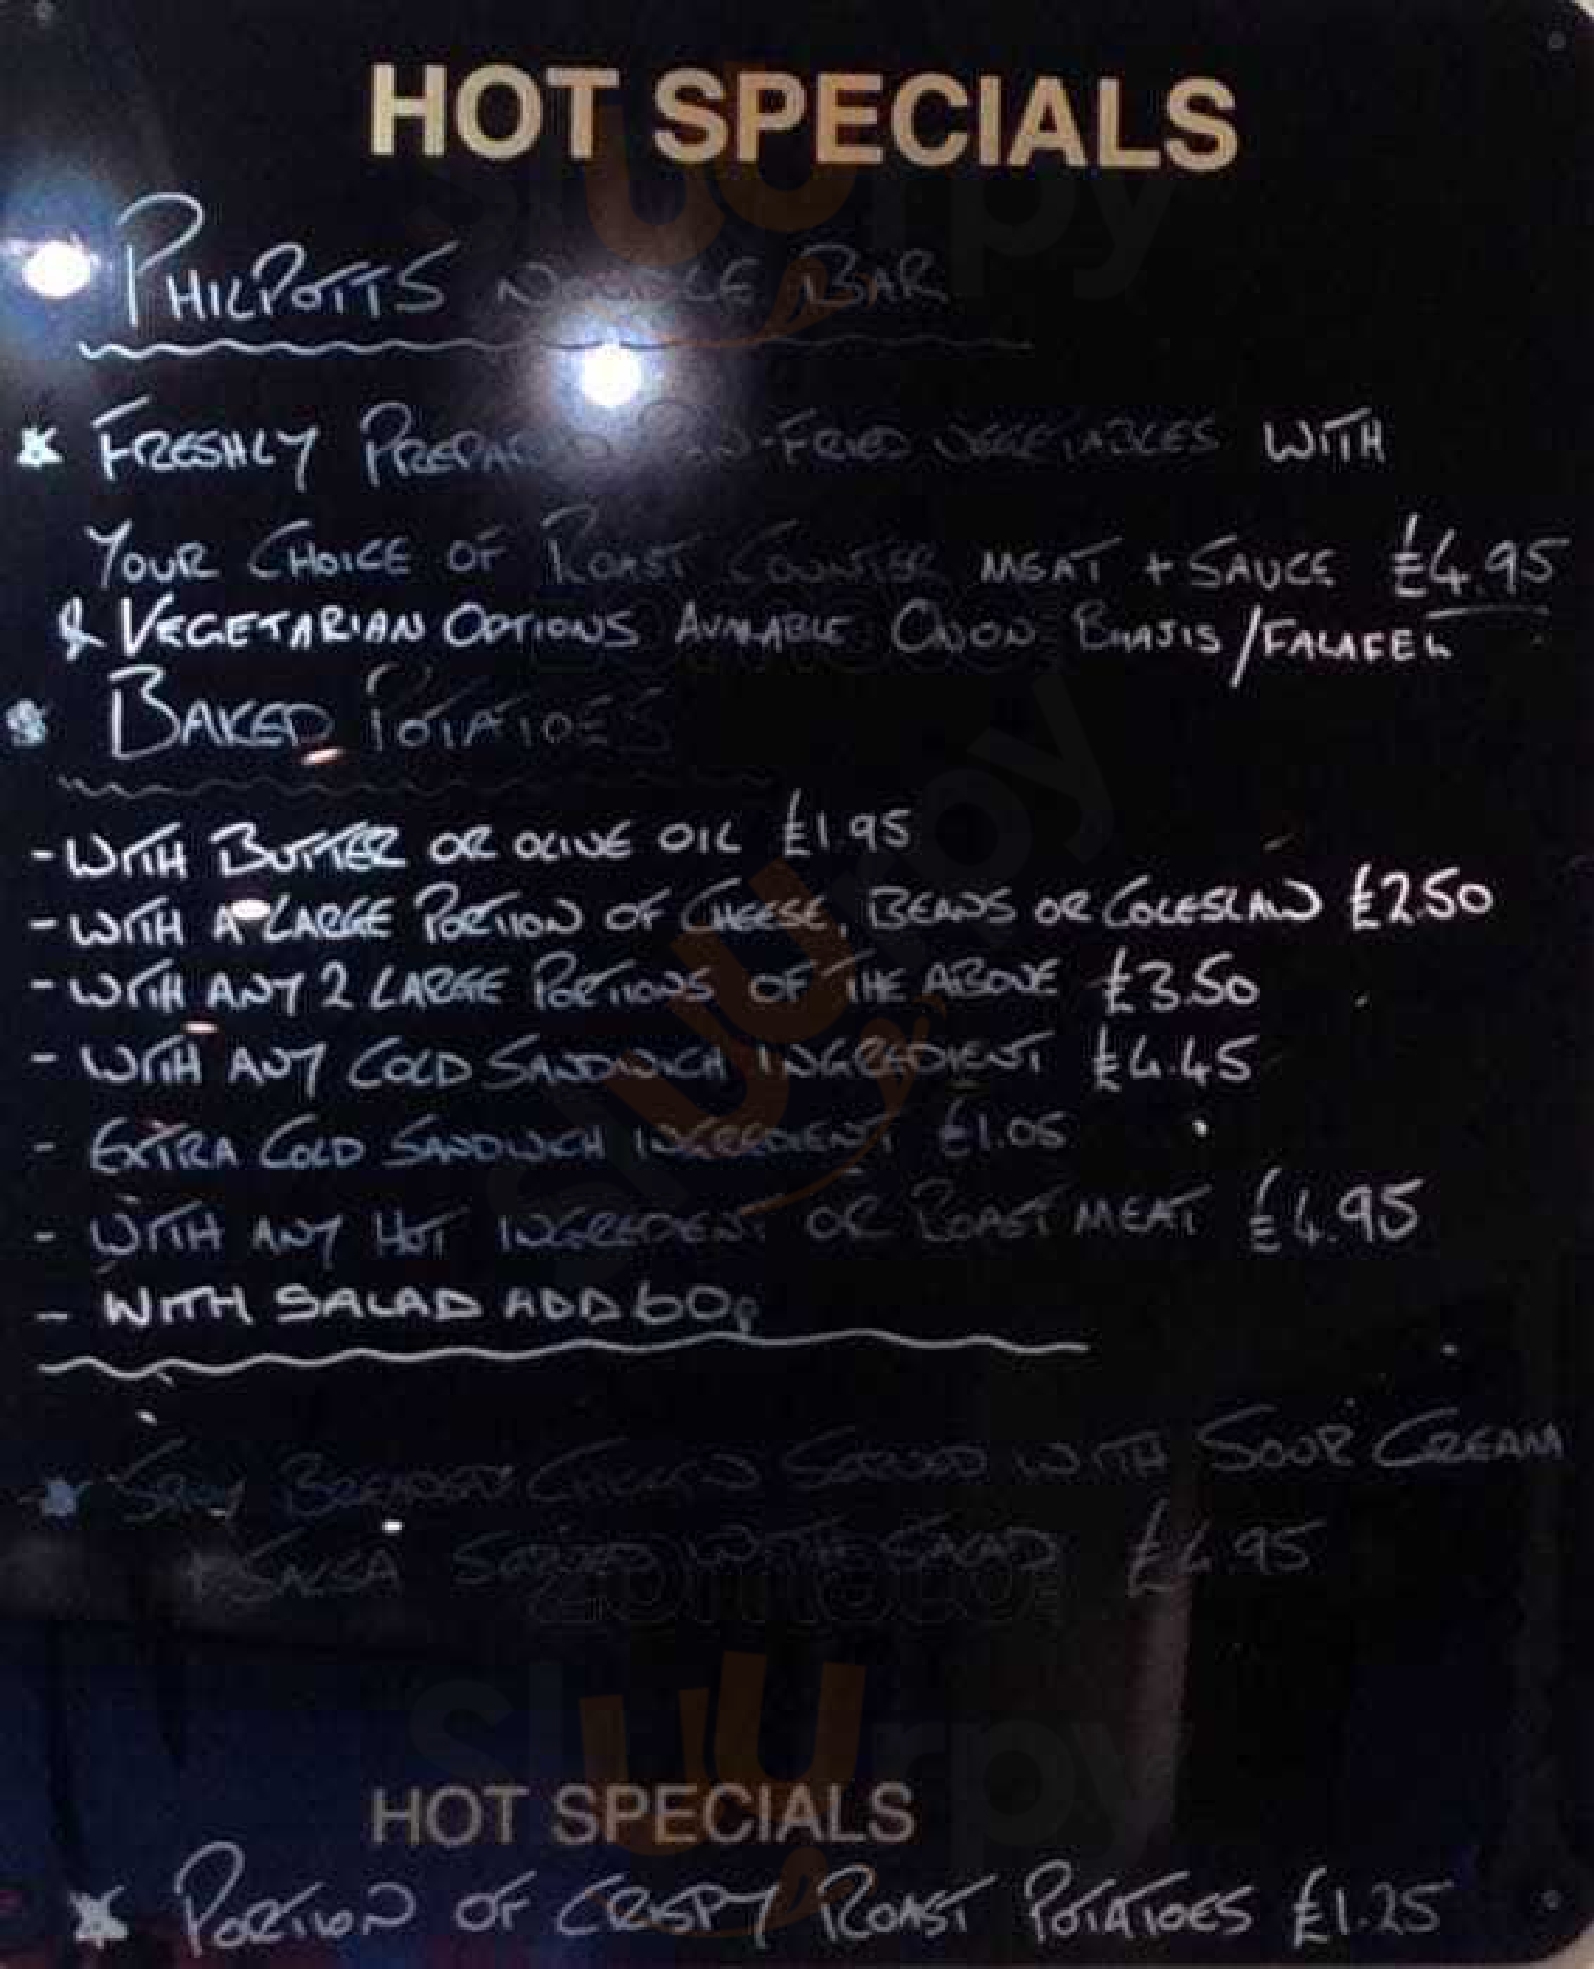 HOT SPECIALS
PHILPOTTS NOODLE BAR
FRESHLY PREPARED PAN-FRIED VEGETABLES WITH
YOUR CHOICE OF ROAST COUNTER MEAT + SAUCE £4.95
& VEGETARIAN OPTIONS AVAILABLE ONION BHAJIS/FALAFEL
BAKED POTATOES
- WITH BUTTER OR OLIVE OIL £1.95
- WITH A LARGE PORTION OF CHEESE, BEANS OR COLESLAW £2.50
- WITH ANY 2 LARGE PORTIONS OF THE ABOVE £3.50
- WITH ANY COLD SANDWICH INGREDIENT £4.45
- EXTRA COLD SANDWICH INGREDIENT £1.05
- WITH ANY HOT INGREDIENT OR ROAST MEAT £4.95
- WITH SALAD ADD 60p
BREADED CHICKEN SERVED WITH SOUR CREAM
+ SALSA SERVED WITH SALAD £4.95
HOT SPECIALS
PORTION OF CRISPY ROAST POTATOES £1.25